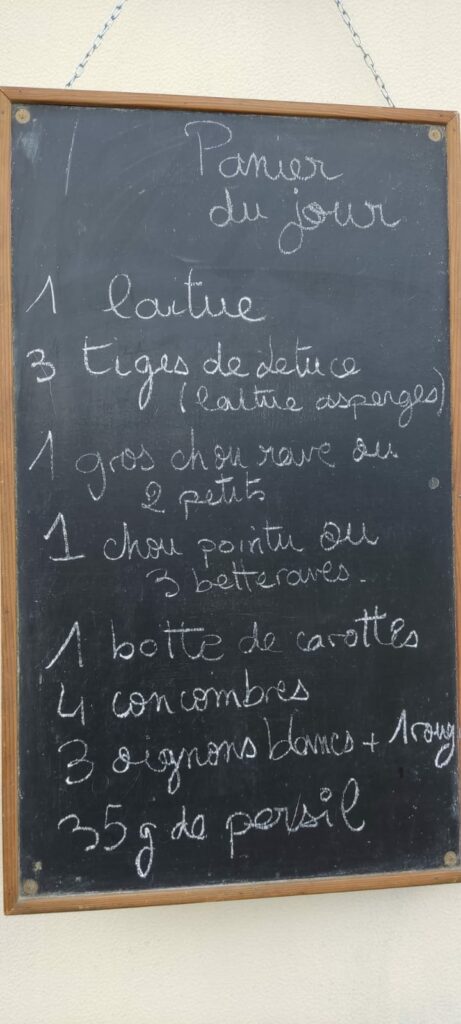 Panier
du jour
1 laitue
3 tiges de letuce
(laitue asperges)
1 gros chou rave ou
2 petits
1 chou pointu ou
3 betteraves.
1 botte de carottes
4 concombres
3 oignons blancs + 1 roug
35g de persil